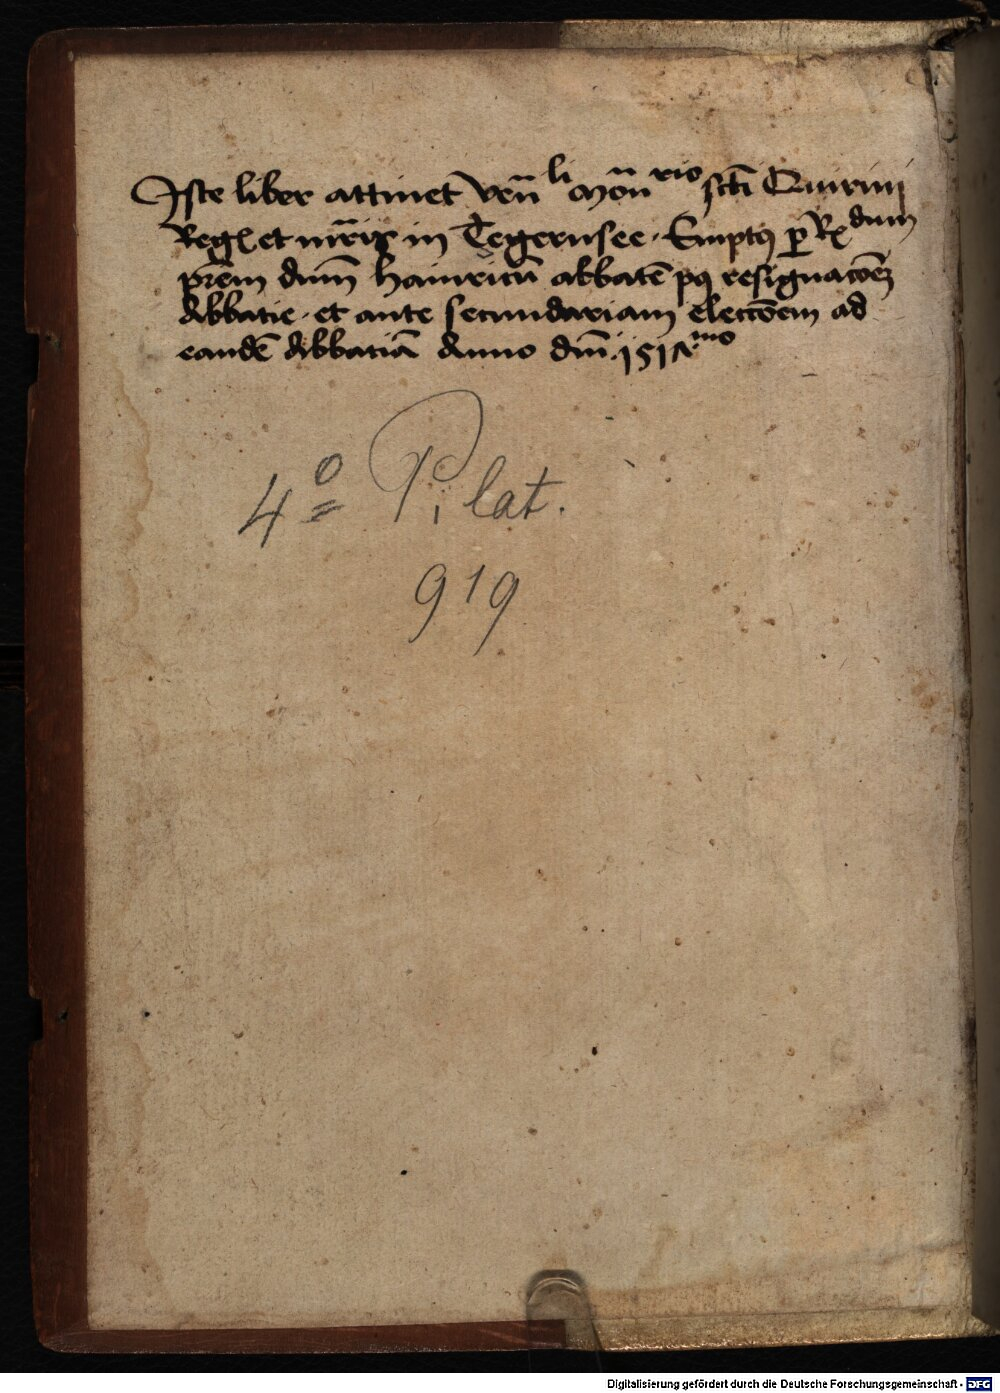 Iste liber attinet Ven̄li Mon̄rio sct̄i Quirini
Regꝫ et mr̄is in Tegernsee · Emptꝰ ꝑ Rdum
pr̄em dnm̄ Hainricū abbatē pꝰ resignacōeꝫ
Abbatie · et ante secundariam electōem ad
eandē Abbatiā Anno dm̄ · 1517mo
4º P. lat.
919
Digitalisierung gefördert durch die Deutsche Forschungsgemeinschaft - DFG